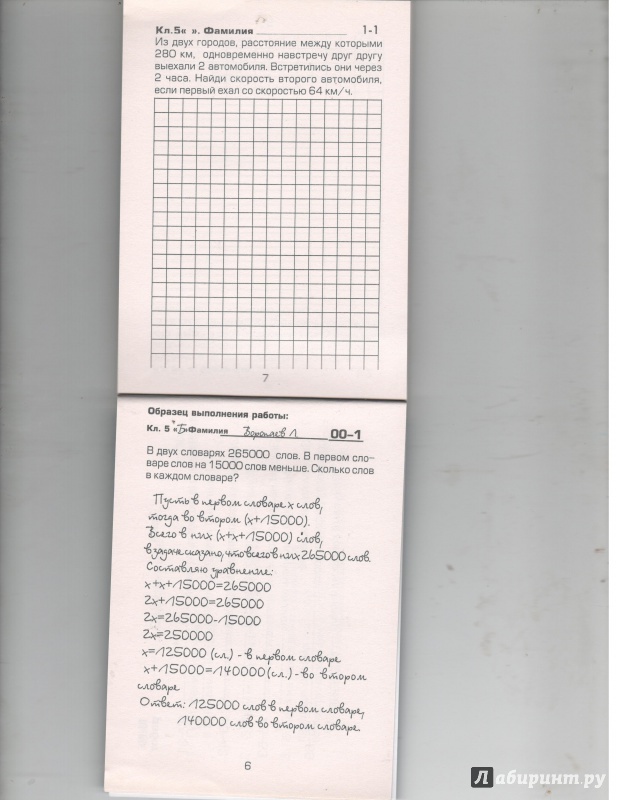 Кл.5« ». Фамилия 1-1
Из двух городов, расстояние между которыми
280 км, одновременно навстречу друг другу
выехали 2 автомобиля. Встретились они через
2 часа. Найди скорость второго автомобиля,
если первый ехал со скоростью 64 км/ч.
7
Образец выполнения работы:
Кл. 5 «Б»Фамилия Воропаев Л 00–1
В двух словарях 265000 слов. В первом сло-
варе слов на 15000 слов меньше. Сколько слов
в каждом словаре?
Пусть в первом словаре x слов,
тогда во втором (x+15000).
Всего в них (x+x+15000) слов,
в задаче сказано, что всего в них 265000 слов.
Составляю уравнение:
x+x+15000=265000
2x+15000=265000
2x=265000-15000
2x=250000
x=125000 (сл.) - в первом словаре
x+15000=140000 (сл.) - во втором
словаре
Ответ: 125000 слов в первом словаре,
140000 слов во втором словаре.
6
Лабиринт.ру